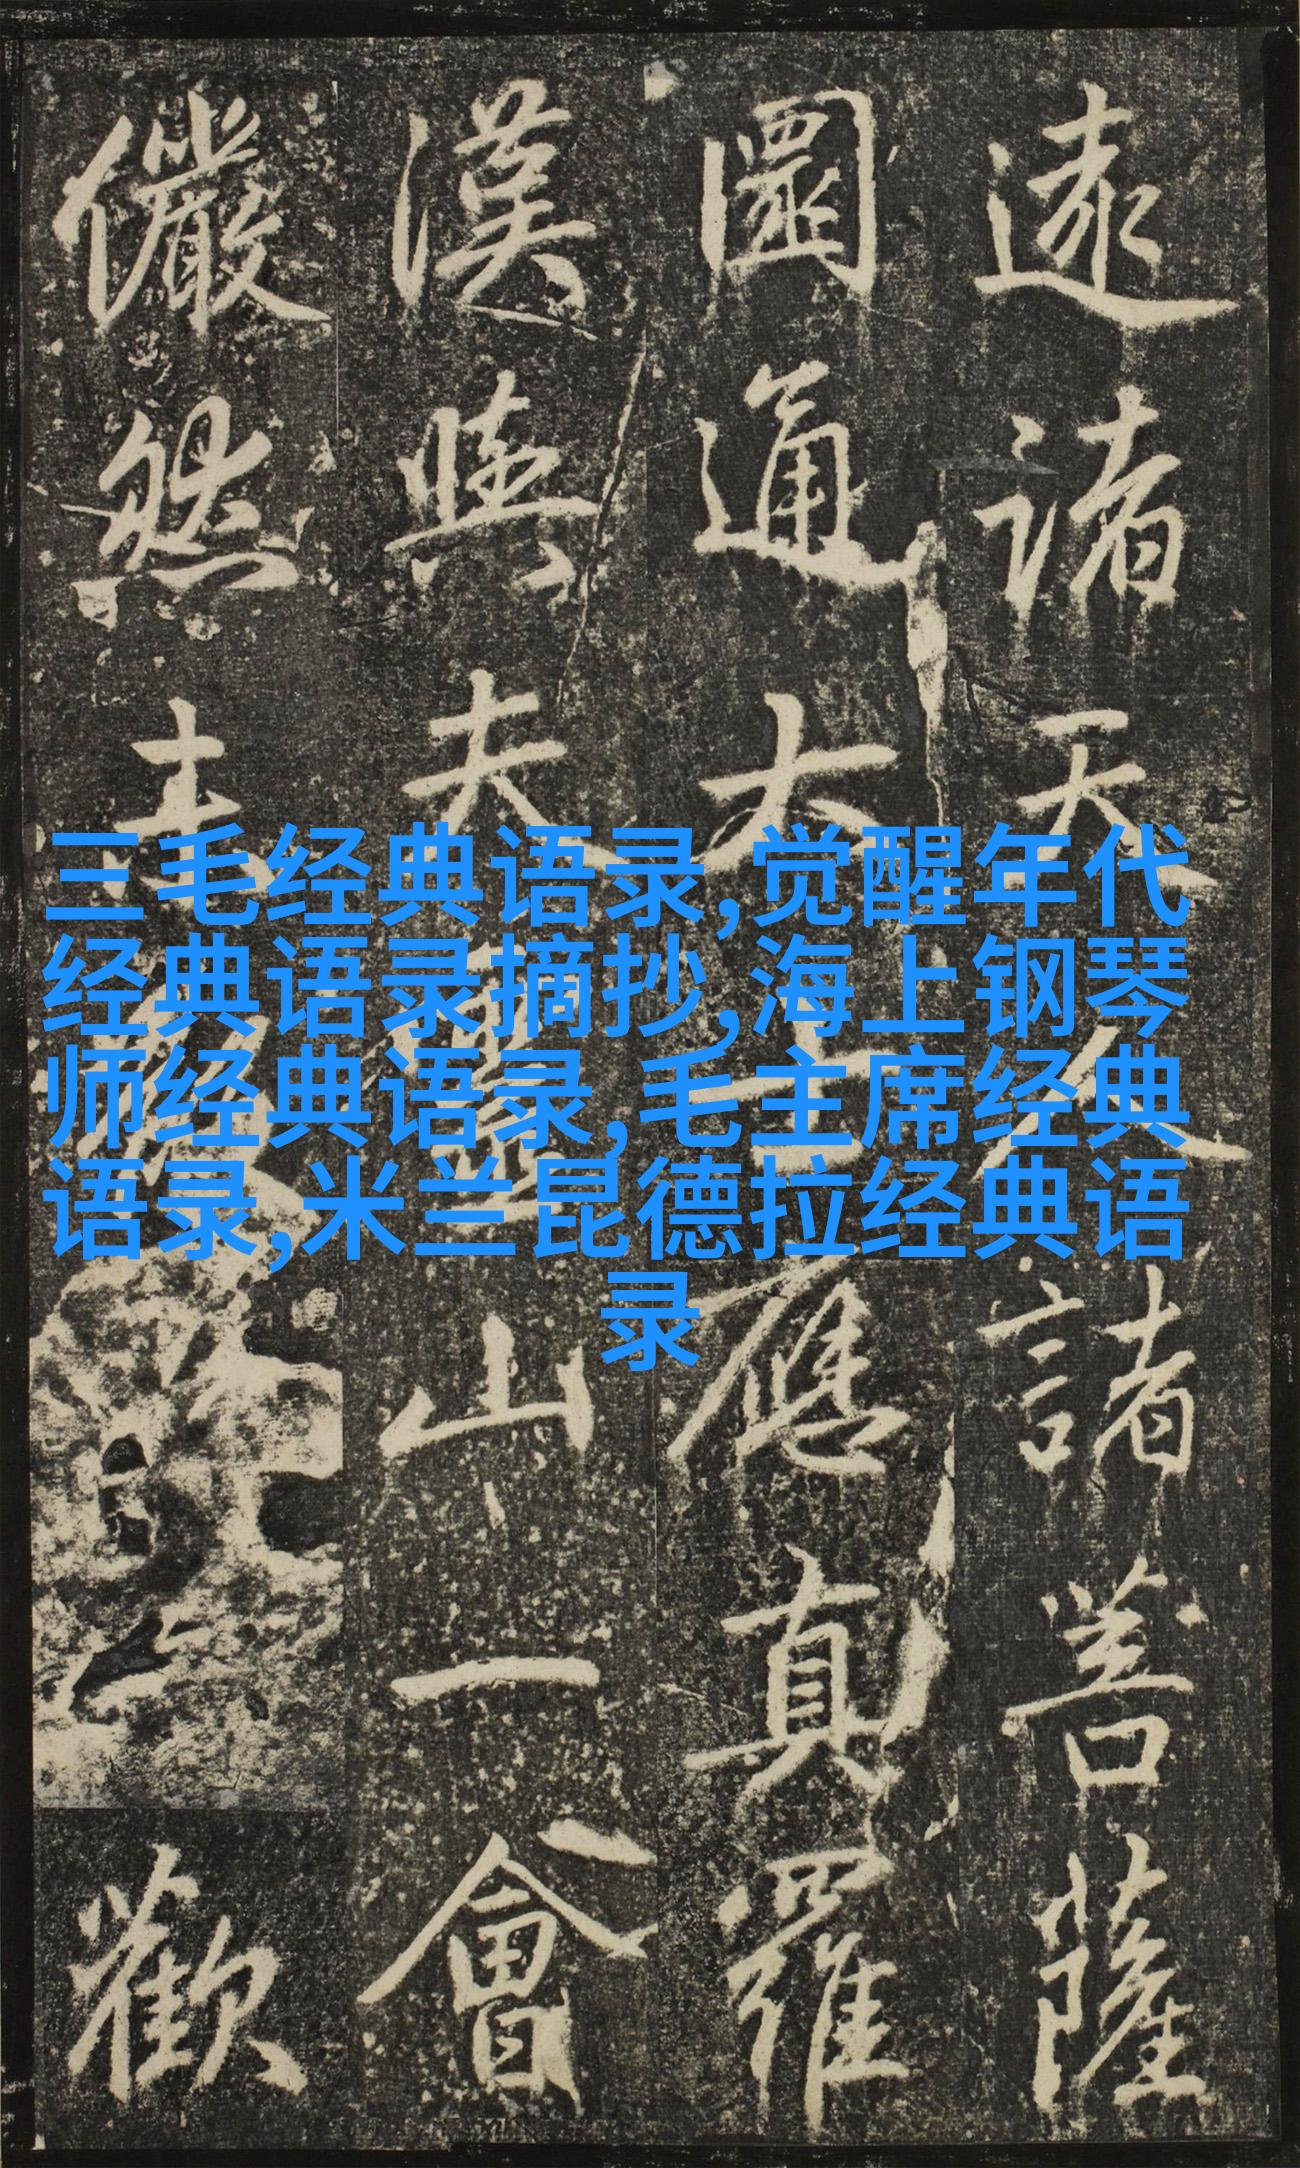 三毛经典语录,觉醒年代
经典语录摘抄,海上钢琴
师经典语录,毛主席经典
语录,米兰昆德拉经典语
录
諸天人諸菩薩
圜通大士應真羅
漢與夫靈山一會
儼然歡